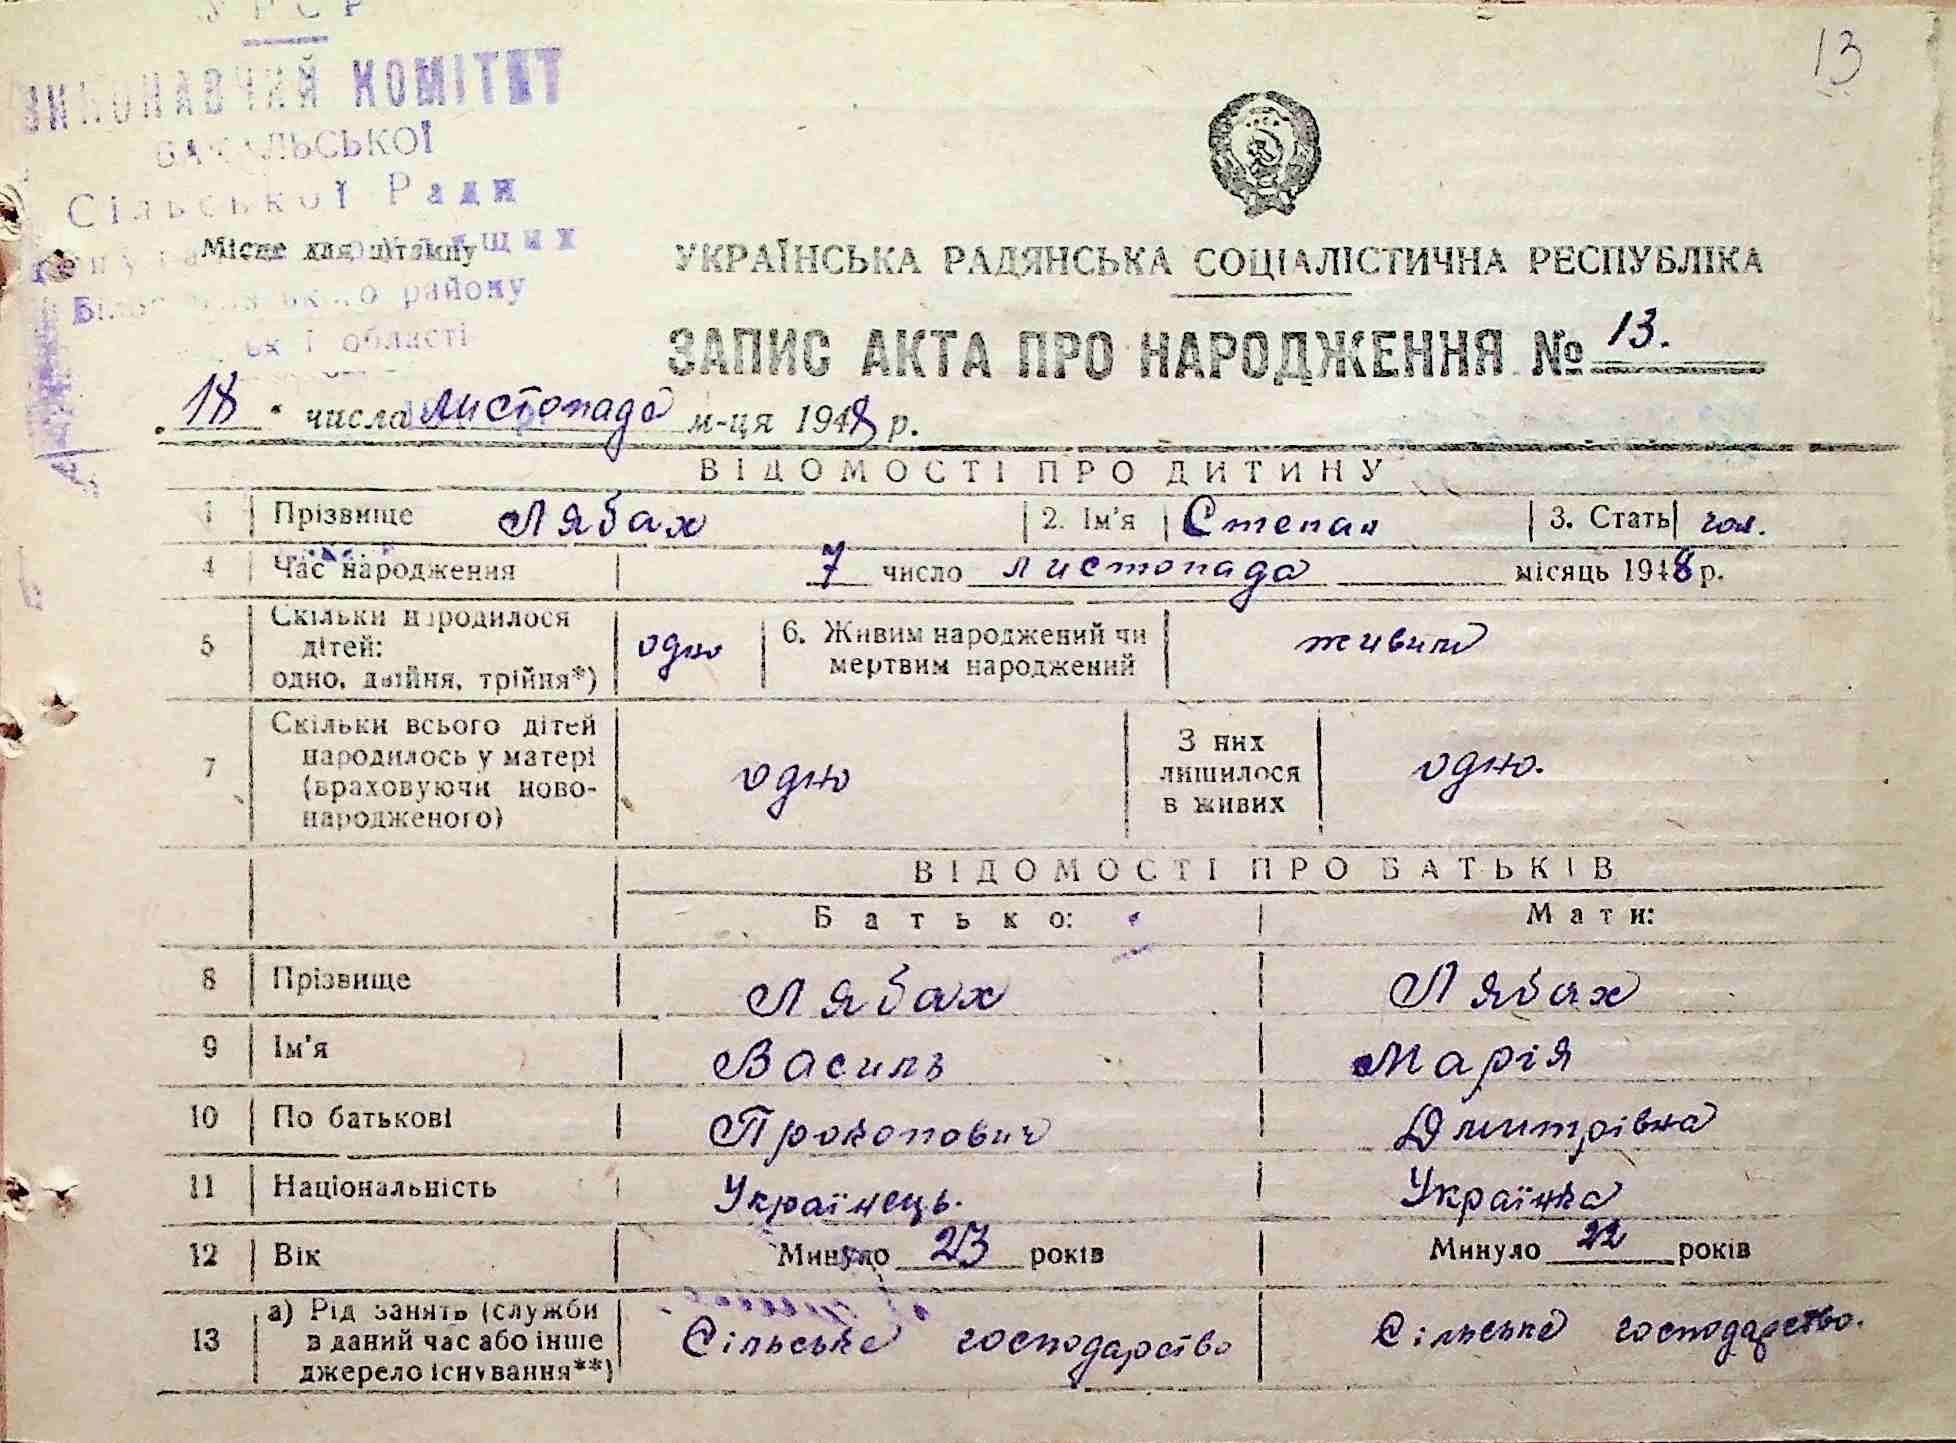 УРСР
ВИКОНАВЧИЙ КОМІТЕТ
Сільської Ради
району
області
Місце для штампу
13
УКРАЇНСЬКА РАДЯНСЬКА СОЦІАЛІСТИЧНА РЕСПУБЛІКА
ЗАПИС АКТА ПРО НАРОДЖЕННЯ № 13.
18 " числа листопада м-ця 1948 р.
ВІДОМОСТІ ПРО ДИТИНУ
1 Прізвище Лябах 2. Ім'я Степан 3. Стать чол.
4 Час народження 7 число листопада місяць 1948 р.
5 Скільки народилося дітей: одно, двійня, трійня*) одно 6. Живим народжений чи мертвим народжений живим
7 Скільки всього дітей народилось у матері (враховуючи новонародженого) одно З них лишилося в живих одно.
ВІДОМОСТІ ПРО БАТЬКІВ
Батько: Мати:
8 Прізвище Лябах Лябах
9 Ім'я Василь Марія
10 По батькові Прокопович Дмитрівна
11 Національність Українець. Українка
12 Вік Минуло 23 років Минуло 22 років
13 а) Рід занять (служби в даний час або інше джерело існування**) Сільське господарство Сільське господарство.